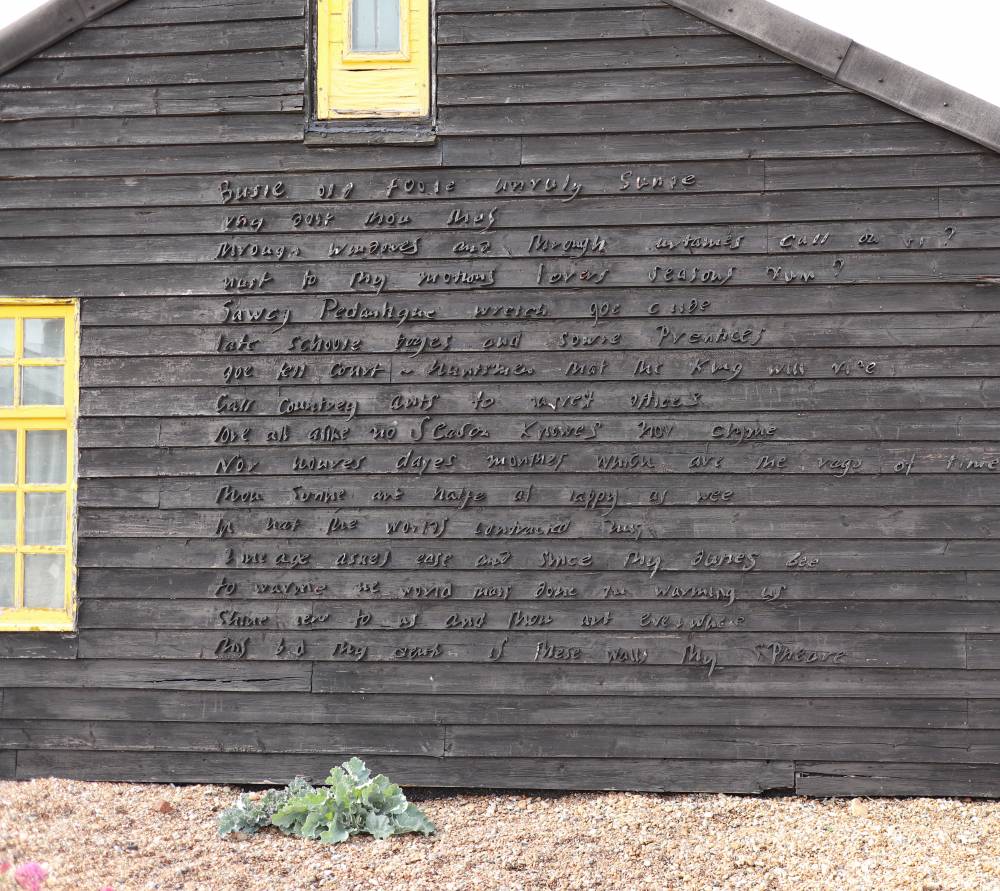 Busie old foole unruly Sunne
why dost thou thus
through windowes and through curtaines call on us ?
must to thy motions lovers seasons run ?
Sawcy Pedantique wretch goe chide
late schoole boyes and sowre Prentices
goe tell Court - Huntsmen that the King will ride
Call Countrey ants to harvest offices
love all alike no Season knowes nor clyme
Nor houres dayes months which are the rags of time
thou Sunne art halfe as happy as wee
In that the world's contracted thus
Thine age askes ease and since thy duties bee
to warme the world that's done in warming us
Shine here to us and thou art everywhere
this bed thy center is these walls thy Spheare